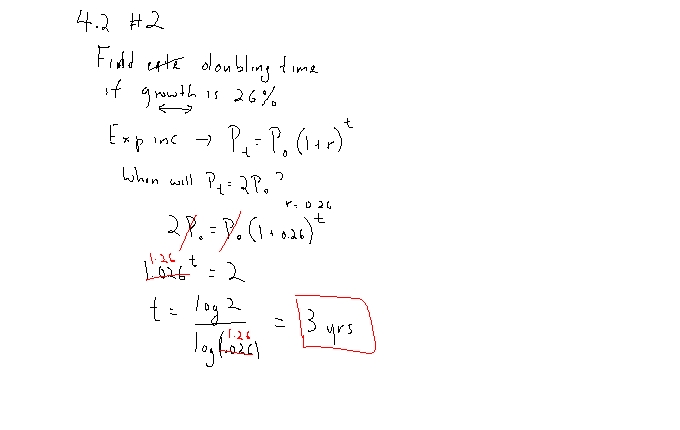 4.2 #2
Find rate doubling time
if growth is 26%
Exp inc → P_t = P_0 (1+r)^t
When will P_t = 2P_0 ?
r = 0.26
2P_0 = P_0 (1 + 0.26)^t
1.26
1.026^t = 2
t = log 2 / log(1.026) = 3 yrs
1.26